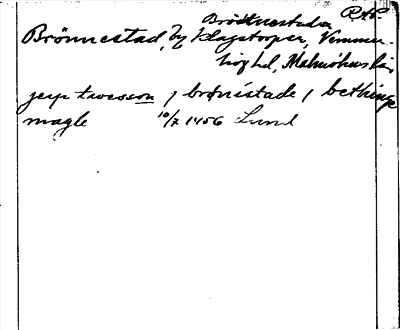 Bröttnestader RAP.
Brönnestad, by Klagstorper, Vemmen-
hög hd, Malmöhus län
jesp trwesson / brønistade / bethinge
magle 10/7 1456 Lund